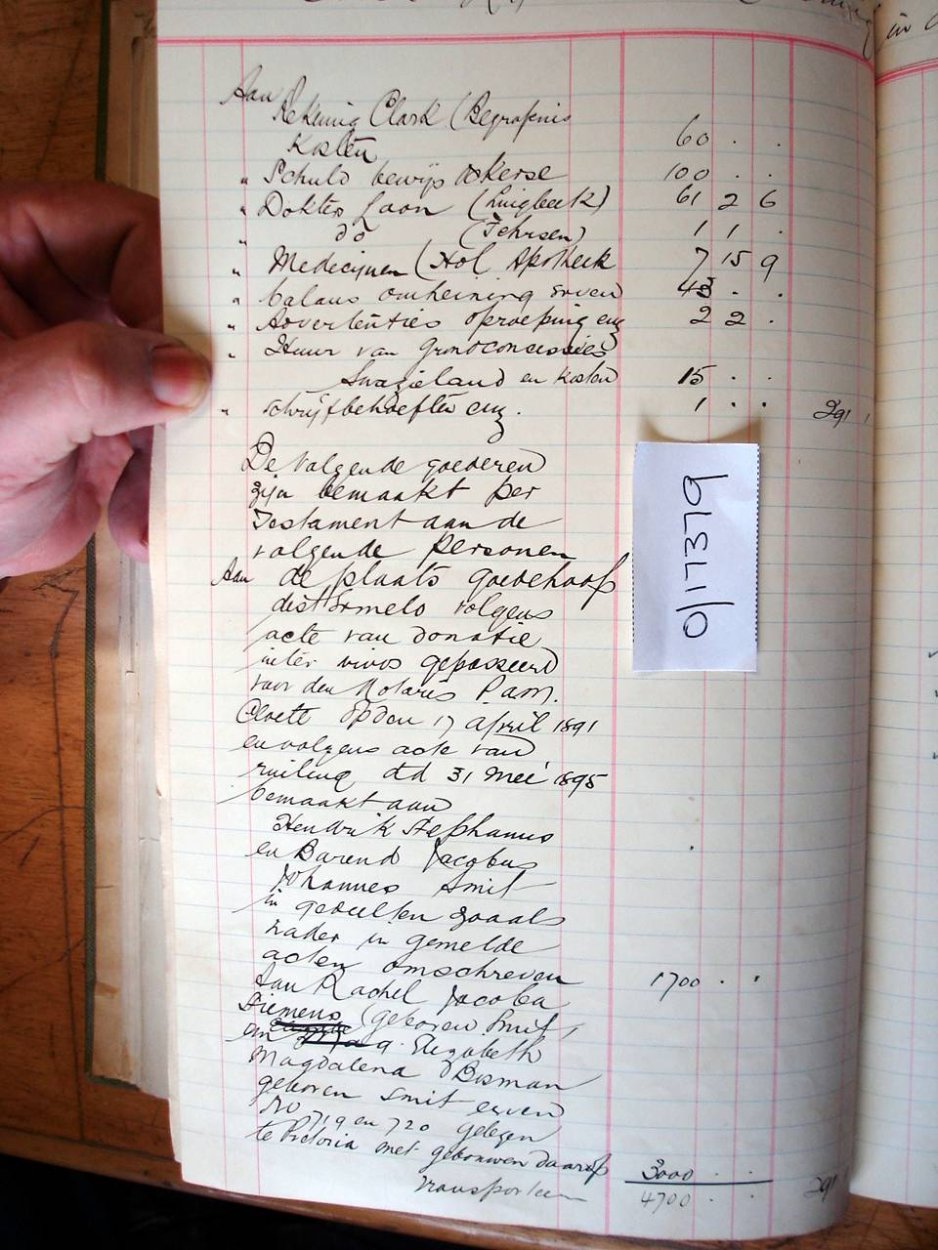 Aan
Rekenig Clark (Begrafenis
Kosten 60 . .
" Schuld bewijs Oskerse 100 . .
" Dokter Loon (Luigbeek) 61 2 6
" do (Tehrsen) 1 1 .
" Medecijnen (Hol Apotheek 7 15 9
" balans omheining erven 43 . .
" Advertenties oproeping enz 2 2 .
" Huur van Grondconcessies
Swazieland en kosten 15 . .
" Schrijfbehoeften enz. 1 . . 291 1
De volgende goederen
zijn bemaakt per
Testament aan de
volgende Personen
Aan de plaats Goedehoop
dist Ermelo volgens
acte van donatie
inter vivos gepasseerd
voor den Notaris
Cloete op den 17 april 1891
en volgens acte van
ruiling dd 31 Mei 1895
bemaakt aan
Hendrik Stephanus
en Barend Jacobus
Johannes Smit
in gedeelten zooals
nader in gemelde
acten omschreven 1700 . .
Aan Rachel Jacoba
Siemens (geboren Smit,
en Elizabeth
Magdalena Bosman
geboren Smit erven
No 719 en 720 gelegen
te Pretoria met gebouwen daarop 3000 . .
Transporteen 4700 . . 291 1
0/17379